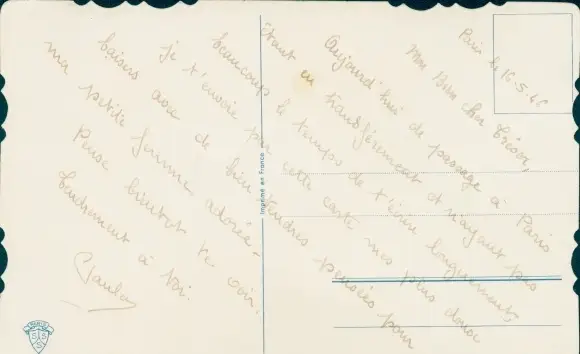 Paris le 16.5.46
Mon bien cher trésor,
Aujourd'hui de passage à Paris
étant en transfèrement et n'ayant pas
beaucoup le temps de t'écrire longuement,
je t'envoie par cette carte mes plus doux
baisers avec de bien tendres pensées pour
ma petite femme adorée.
Pense bientôt te voir.
Tendrement à toi.
Imprimé en France
PARIS